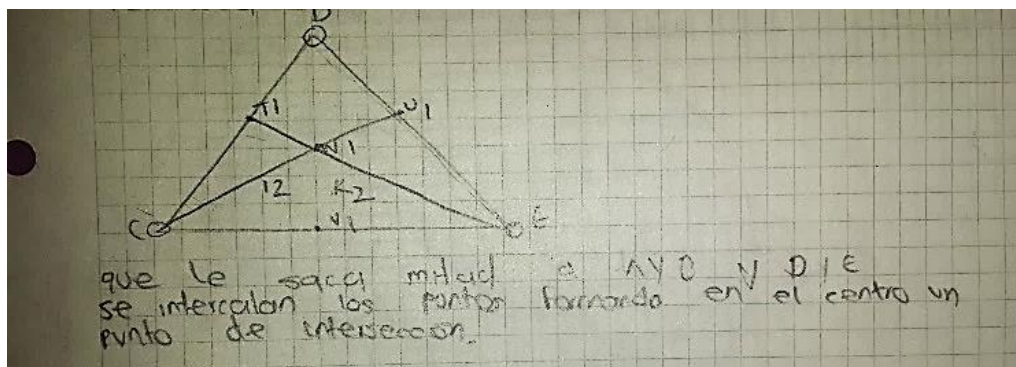 D
T1
U1
W1
12
K2
C
V1
E
que le saca mitad a A y C y D / E
se intercalan los puntos formando en el centro un
punto de interseccion.